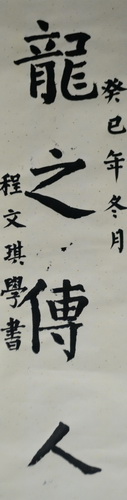 龍之傳人
癸巳年冬月
程文琪學書